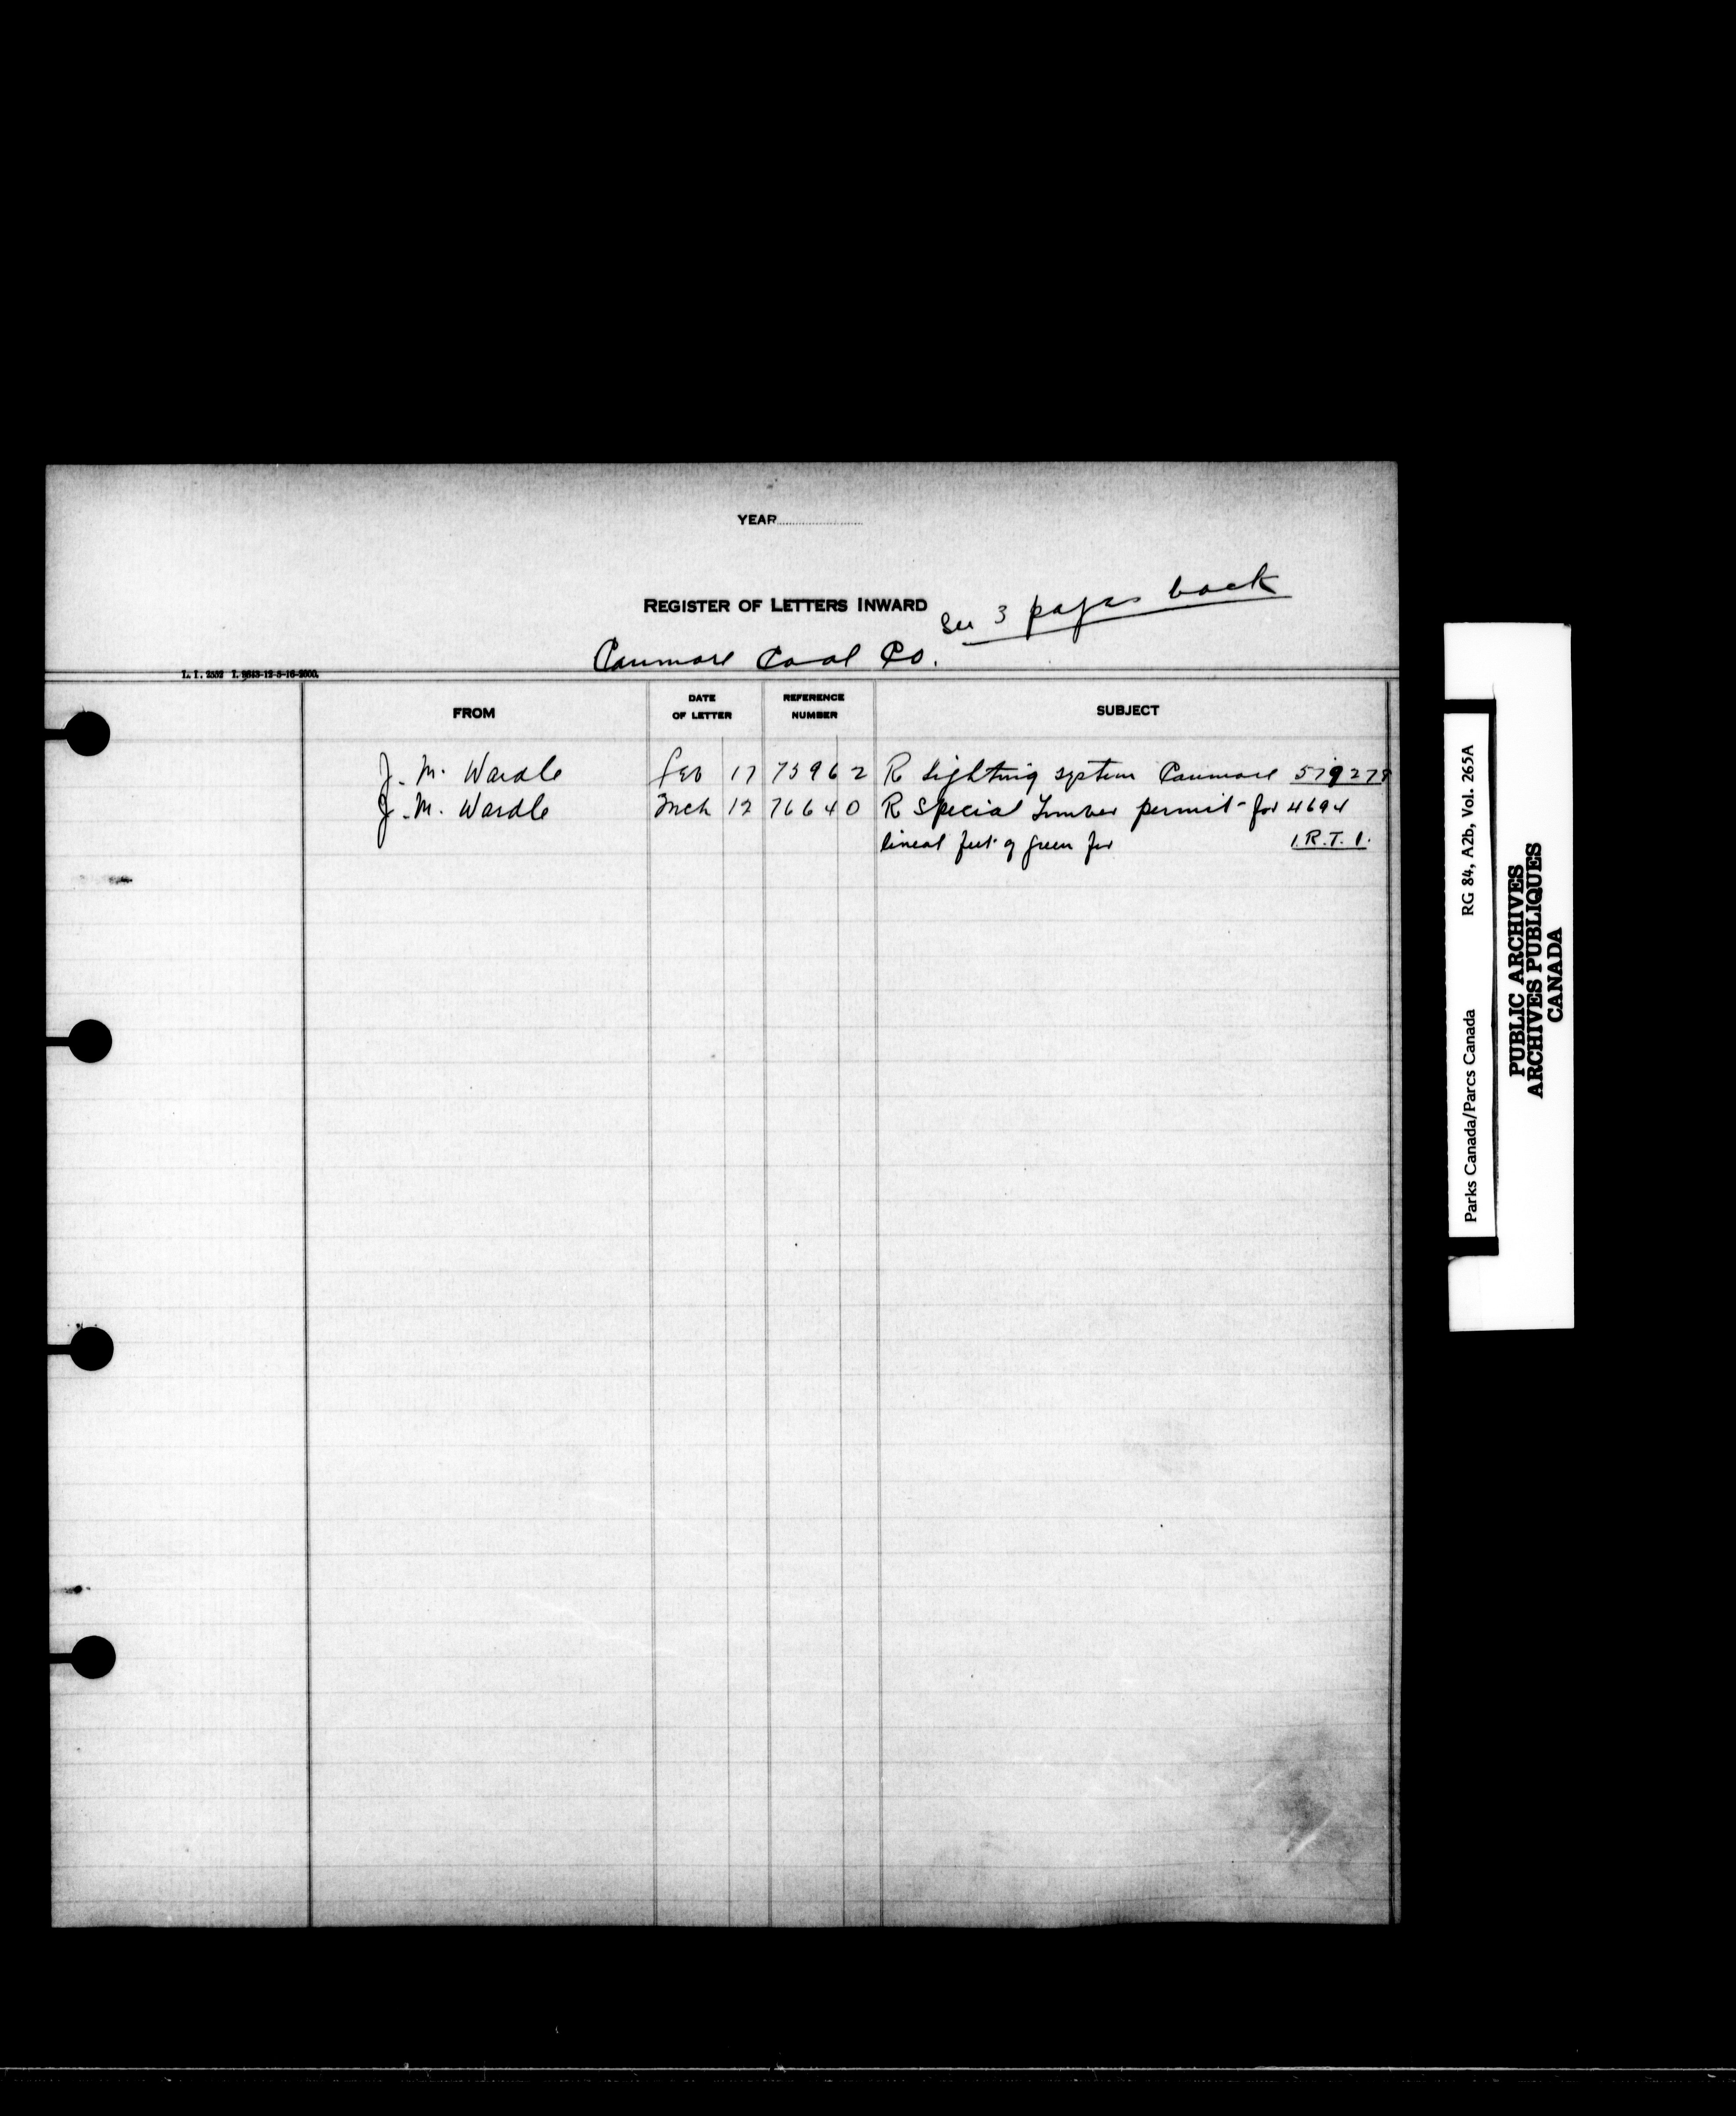 YEAR
REGISTER OF LETTERS INWARD
See 3 pages back
Canmore Coal Co.
FROM DATE OF LETTER REFERENCE NUMBER SUBJECT
J. M. Wardle Feb 17 75962 R Lighting system Canmore 579278
J. M. Wardle Mch 12 76640 R Special Timber permit for 4694
lineal feet of green fir I.R.T. 1.
Parks Canada/Parcs Canada RG 84, A2b, Vol. 265A
PUBLIC ARCHIVES
ARCHIVES PUBLIQUES
CANADA